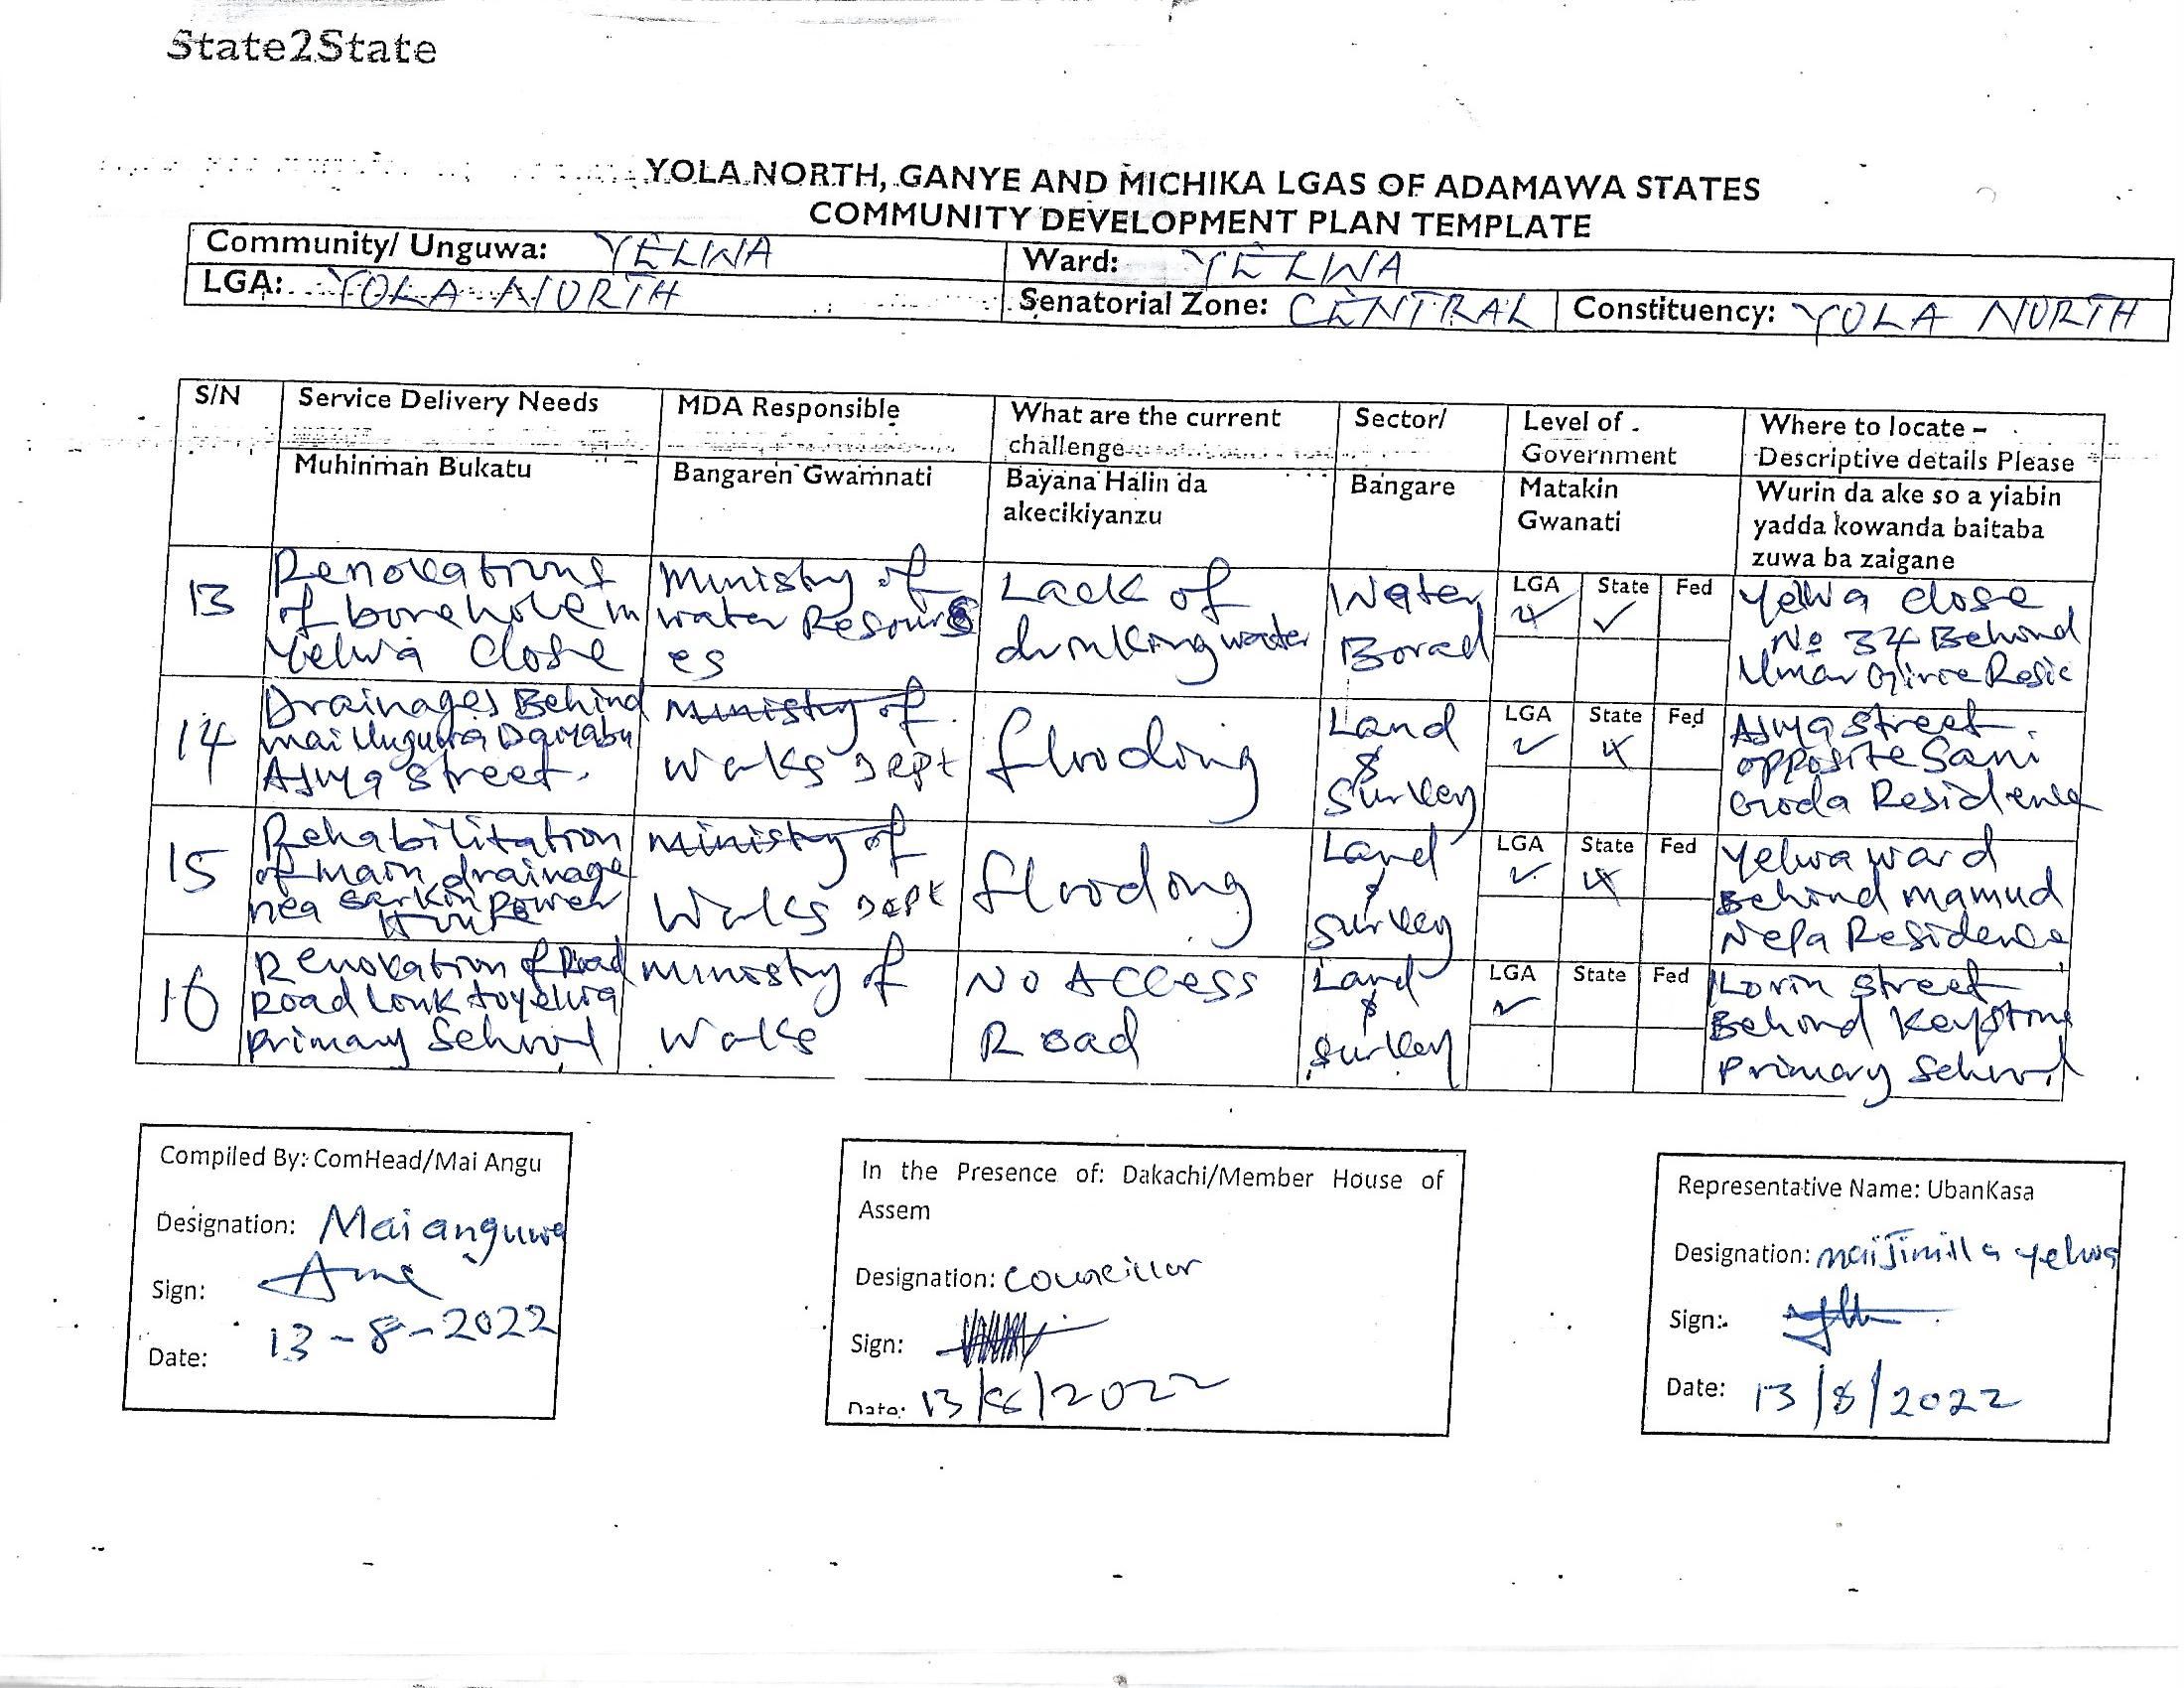 State2State
YOLA NORTH, GANYE AND MICHIKA LGAS OF ADAMAWA STATES
COMMUNITY DEVELOPMENT PLAN TEMPLATE
Community/ Unguwa: YELWA Ward: YELWA
LGA: YOLA NORTH Senatorial Zone: CENTRAL Constituency: YOLA NORTH
S/N Service Delivery Needs MDA Responsible What are the current challenge Sector/ Level of Government Where to locate – Descriptive details Please
Muhinman Bukatu Bangaren Gwamnati Bayana Halin da akecikiyanzu Bangare Matakin Gwanati Wurin da ake so a yiabin yadda kowanda baitaba zuwa ba zaigane
13
Renovations
of borehole in
Yelwa Close
Ministry of
water Resourc
es
Lack of
drinking water
Water
Borad
LGA State Fed
✓
Yelwa close
No 34 Behind
Umar Girre Resic
14
Drainages Behind
mai Unguwa Danyabu
Ajiya street.
Ministry of
Woks Dept
flooding
Land
&
Survey
LGA State Fed
✓
Ajiya street
opposite Sani
Groda Residence
15
Rehabilitation
of main drainage
nea Sarkin Power
House
Ministry of
Woks Dept
flooding
Land
&
Survey
LGA State Fed
✓
Yelwa ward
Behind mamud
Nepa Residence
16
Renovation of Road
Road Link to yelwa
primary School
Ministry of
Woks
No Access
Road
Land
&
Survey
LGA State Fed
✓
Ilorin street
Behind Keystone
Primary School
Compiled By: ComHead/Mai Angu
Designation: Mai anguwa
Sign:
Date: 13-8-2022
In the Presence of: Dakachi/Member House of
Assem
Designation: Councillor
Sign:
Date: 13/8/2022
Representative Name: UbanKasa
Designation: mai Jimilla yelwa
Sign:
Date: 13/8/2022